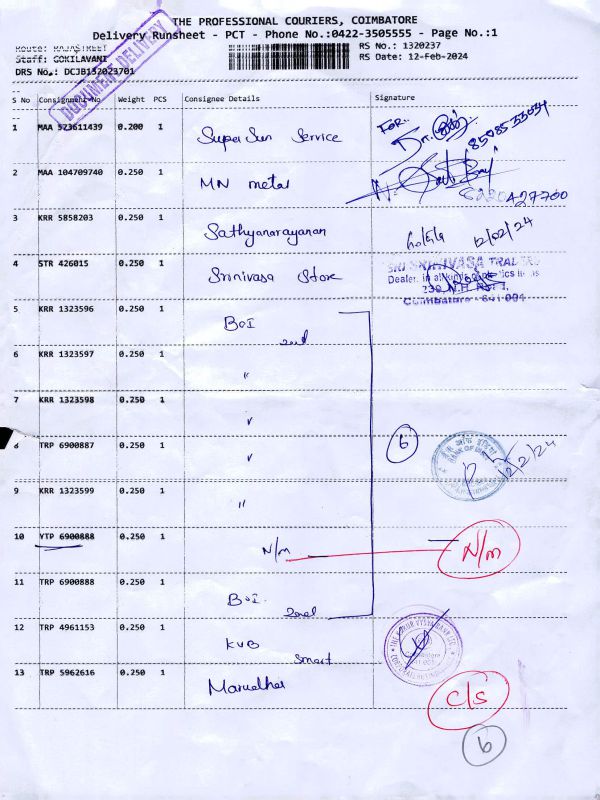 THE PROFESSIONAL COURIERS, COIMBATORE
Delivery Runsheet - PCT - Phone No.:0422-3505555 - Page No.:1
Route: RAJASTREET
Staff: GOKILAVANI
DRS No.: DCJB132023701
RS No.: 1320237
RS Date: 12-Feb-2024
DOCUMENT DELIVERY
S No Consignment No Weight PCS Consignee Details Signature
1 MAA 523611439 0.200 1 Super Sun Service For. 8508533034
2 MAA 104709740 0.250 1 MN metal
3 KRR 5858203 0.250 1 Sathyanarayanan 12/02/24
4 STR 426015 0.250 1 Srinivasa Store
SRI SRINIVASA TRADERS
Dealer in all
Coimbatore - 641 001
5 KRR 1323596 0.250 1 BOI 2nd
6 KRR 1323597 0.250 1 "
7 KRR 1323598 0.250 1 "
8 TRP 6900887 0.250 1 " 6 12/2/24
9 KRR 1323599 0.250 1 "
10 YTP 6900888 0.250 1 N/m N/m
11 TRP 6900888 0.250 1 BOI. 2nd
12 TRP 4961153 0.250 1 KVB Smart
13 TRP 5962616 0.250 1 C/S
6